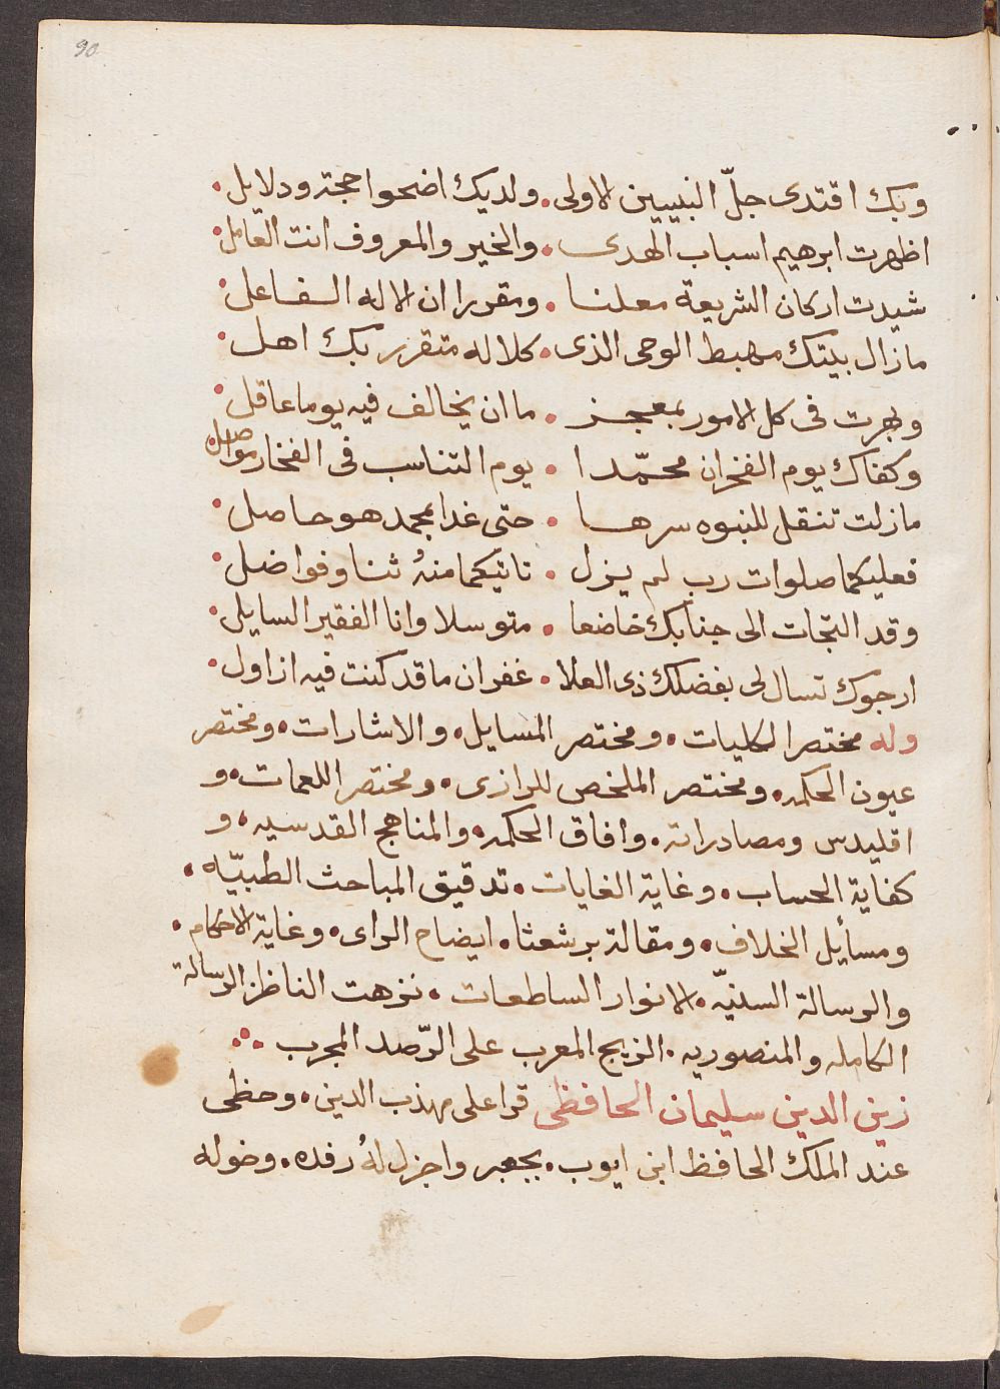 90
وبك اقتدى جلّ النبيين الاولى • ولديك اضحوا حجة ودلايل •
اظهرت ابرهيم اسباب الهدى • والخير والمعروف انت القايل •
شيدت اركان الشريعة معلنا • ومقررا ان الاله الفاعل •
مازال بيتك مهبط الوحى الذى • كلاله متقرر بك اهل •
وبهرت فى كل الامور بمعجز • ما ان يخالف فيه يوما عاقل •
وكفاك يوم الفخر ان محمّدا • يوم التناسب فى الفخار مواصل
مازلت تنقل للنبوه سرها • حتى غدا بمحمد هو حاصل •
فعليكما صلوات رب لم يزل • تاتيكما منهُ ثنا وفواضل •
وقد التجات الى جنابك خاضعا • متوسلا وانا الفقير السايل •
ارجوك تسال لى بفضلك ذى العلا • غفران ما قد كنت فيه ازاول •
وله مختصر الكليات • ومختصر المسايل • والاشارات • ومختصر
عيون الحكمه • ومختصر الملخص للرازى • ومختصر اللعمات • و
اقليدس ومصادراته • وافاق الحكمه • والمناهج القدسيه • و
كفاية الحساب • وغاية الغايات • تدقيق المباحث الطبيّه •
ومسأيل الخلاف • ومقالة برشعثا • ايضاح الراى • وغاية الاحكام •
والرسالة السنيّه • الانوار الساطعات • نزهت الناظر • الرسالة
الكامله والمنصوريه • الزيج المعرب على الرّصد المجرب •••
زين الدين سليمان الحافظى قرا على مهذب الدين • وحظى
عند الملك الحافظ ابن ايوب • بجعبر واجزل لهُ رفده • وخوله